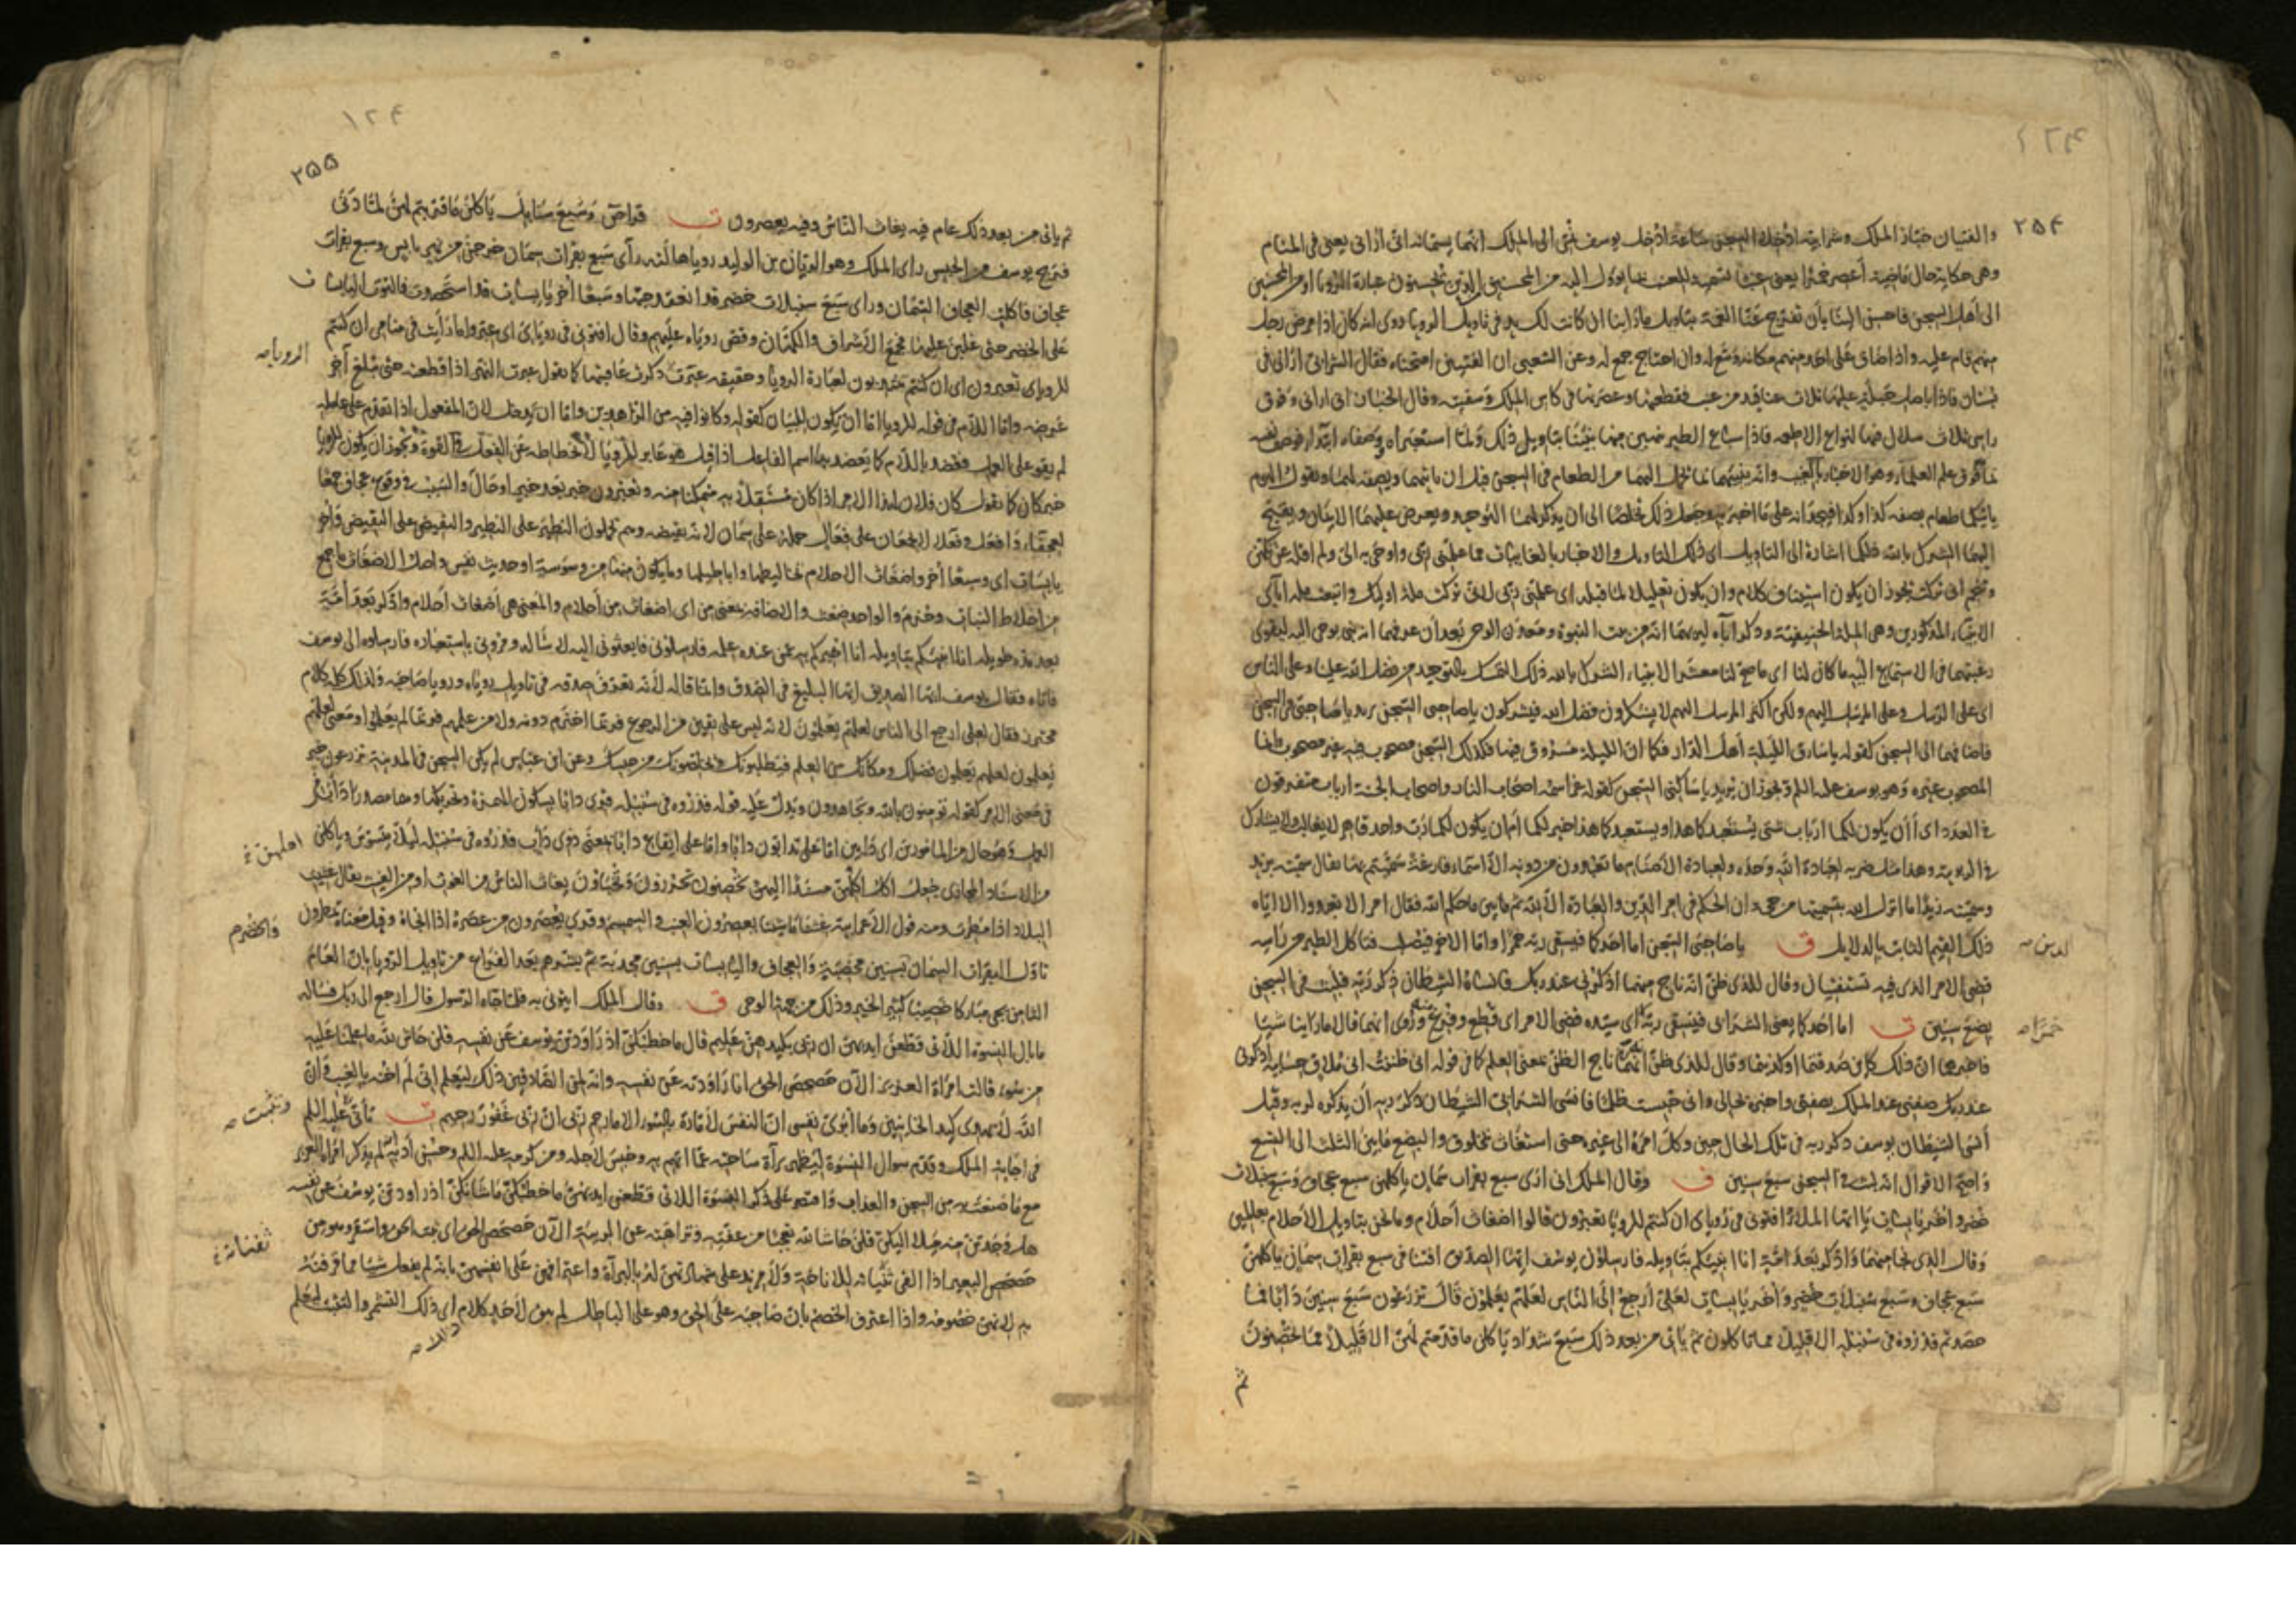 ٢٥٤
والفتيان خباز الملك وشرابيه ادخلا السجن ساعة ادخل يوسف الى الملك انهما يسمانه انى ارانى يعنى فى المنام
وهى حكاية حال ماضية أعصر خمرا يعنى عنبا تسمية للعنب بما يؤول اليه من المحسنين من الذين يحسنون عبارة الرؤيا او من المحسنين
الى أهل السجن فاحسن الينا بأن تفرج عنا الغمة بتاويل ما راينا ان كانت لك يد فى تاويل الرويا روى انه كان اذا مرض رجل
منهم قام عليه واذا ضاق على احد منهم مكانه وسع له وان احتاج جمع له وعن الشعبى ان الفتيين امتحناه فقال الشرابى ارانى فى
بستان فاذا باصل حبلة عليها ثلاث عناقيد من عنب فقطعتها وعصرتها فى كاس الملك وسقيته وقال الخباز انى ارانى وفوق
راسى ثلاث سلال فيها انواع الاطعمة فاذا سباع الطير نبئنا بتاويل ذلك ولما استعبراه وصفاه ابتدا فوصف نفسه
بما فوق علم العلماء وهو الاخبار بالغيب وانه ينبئهما بما يحمل اليهما من الطعام فى السجن قبل ان ياتيهما ويصفه لهما ويقول اليوم
ياتيكما طعام بصفة كذا وكذا فيجدانه على ما اخبر به وجعل ذلك تخلصا الى ان يذكر لهما التوحيد ويعرض عليهما الايمان ويقبح
اليهما الشرك بالله ذلكما اشارة الى التاويل اى ذلك التاويل والاخبار بالمغيبات مما علمنى ربى واوحى به الى ولم اقله عن تكهن
وتنجم انى تركت يجوز ان يكون استيناف كلام وان يكون تعليلا لما قبله اى علمنى ربى لانى تركت ملة اوليك واتبعت ملة آبائى
الانبياء المذكورين وهى الملة الحنيفية وذكر آباءه ليريهما انه من بيت النبوة ومعدن الوحى بعد أن عرفهما انه نبى يوحى اليه ليقوى
رغبتهما فى الاستماع اليه ما كان لنا اى ما صح لنا معشر الانبياء الشرك بالله ذلك التمسك بالتوحيد من فضل الله علينا وعلى الناس
اى على الرسل وعلى المرسل اليهم ولكن اكثر المرسل اليهم لا يشكرون فضل الله فيشركون ياصاحبى السجن يريد ياصاحبى فى السجن
فاضافهما الى السجن كقوله ياسارق الليلة أهل الدار فكما ان الليلة مسروق فيها فكذلك السجن مصحوب فيه غير مصحوب وانما
المصحوب غيره وهو يوسف عليه السلم ويجوز ان يريد ياساكنى السجن كقوله عز اسمه اصحاب النار واصحاب الجنة ارباب متفرقون
فى العدد اى أأن يكون لكما ارباب شتى يستعبدكما هذا ويستعبدكما هذا خير لكما أم ان يكون لكما رب واحد قاهر لا يغالب ولا يشارك
فى الربوبية وهذا مثل ضربه لعبادة الله وحده ولعبادة الاصنام ما تعبدون من دونه الا اسماء فارغة سميتم بها يقال سميته بزيد
وسميته زيدا ما انزل الله بتسميتها من حجة ان الحكم فى امر الدين والعبادة الا لله ثم بين ما حكم الله فقال امر الا تعبدوا الا اياه
ذلك القيم الثابت بالدلايل ق ياصاحبى السجن اما احدكما فيسقى ربه خمرا واما الاخر فيصلب فتاكل الطير من راسه
الدين
قضى الامر الذى فيه تستفتيان وقال للذى ظن انه ناج منهما اذكرنى عند ربك فانساه الشيطان ذكر ربه فلبث فى السجن
بضع سنين ت اما احدكما يعنى الشرابى فيسقى ربه اى سيده قضى الامر اى قطع وفرغ منه وروى انهما قالا ما راينا شيئا
خمرا
فاخبرهما ان ذلك كاين صدقتما او كذبتما وقال للذى ظن انه ناج الظن بمعنى العلم كما فى قوله انى ظننت انى ملاق حسابيه اذكرنى
عند ربك صفنى عند الملك بصفتى واخبره بحالى وانى حبست ظلما فانسى الشرابى الشيطان ذكر ربه أن يذكره لربه وقيل
أنسى الشيطان يوسف ذكر ربه فى تلك الحال حين وكل امره الى غيره حتى استغاث بمخلوق والبضع ما بين الثلث الى التسع
واصح الاقوال انه لبث فى السجن سبع سنين ق وقال الملك انى ارى سبع بقرات سمان ياكلهن سبع عجاف وسبع سنبلات
خضر واخر يابسات يا ايها الملأ افتونى فى رؤياى ان كنتم للرؤيا تعبرون قالوا اضغاث أحلام وما نحن بتاويل الاحلام بعالمين
وقال الذى نجا منهما وادكر بعد امة انا انبئكم بتاويله فارسلون يوسف ايها الصديق افتنا فى سبع بقرات سمان ياكلهن
سبع عجاف وسبع سنبلات خضر وأخر يابسات لعلى أرجع إلى الناس لعلهم يعلمون قال تزرعون سبع سنين دابا فما
حصدتم فذروه فى سنبله الا قليلا مما تاكلون ثم ياتى من بعد ذلك سبع شداد ياكلن ما قدمتم لهن الا قليلا مما تحصنون
ثم
١٢٤
٢٥٥
ثم ياتى من بعد ذلك عام فيه يغاث الناس وفيه يعصرون ت
فرج يوسف من الحبس راى الملك وهو الريان بن الوليد رؤيا هالته رأى سبع بقرات سمان خرجن من نهر يابس وسبع بقرات
عجاف فاكلت العجاف السمان وراى سبع سنبلات خضر قد انعقد حبها وسبعا أخر يابسات قد استحصدت فالتوت اليابسات
على الخضر حتى غلبن عليها فجمع الاشراف والكهان وقص روياه عليهم وقال افتونى فى رؤياى اى عبروا ما رأيت فى منامى ان كنتم
للرويا تعبرون اى ان كنتم تنتدبون لعبارة الرويا وحقيقة عبرت ذكرت عاقبتها كما تقول عبرت النهر اذا قطعته حتى تبلغ آخر
الرويا
عرضه واما اللام فى قوله للرويا اما أن يكون للبيان كقوله وكانوا فيه من الزاهدين واما ان يدخل لان المفعول اذا تقدم على عامله
لم يقو على العمل فعضد باللام كما يعضد بها اسم الفاعل اذا قيل هو عابر للرؤيا لانحطاطه عن الفعل فى القوة ويجوز ان يكون للرؤيا
خبر كان كما تقول كان فلان لهذا الامر اذا كان مستقلا به متمكنا منه وتعبرون خبر بعد خبر او حال والسبب فى وقوع عجاف جمعا
لعجفاء وافعل وفعلاء لا يجمعان على فعال حمله على سمان لانه نقيضه وهم يحملون النظير على النظير والنقيض على النقيض وأخر
يابسات اى وسبعا أخر واضغاث الاحلام تخاليطها واباطيلها وما يكون منها من وسوسة او حديث نفس واصل الاضغاث ما جمع
من اخلاط النبات وحزم والواحد ضغث والاضافة بمعنى من اى اضغاث من أحلام والمعنى هى أضغاث أحلام وادكر بعد أمة
بعد مدة طويلة انا انبئكم بتاويله انا اخبركم به عمن عنده علمه فارسلونى فابعثونى اليه لاساله ومرونى باستعباره فارسلوه الى يوسف
فاتاه فقال يوسف ايها الصديق ايها البليغ فى الصدق وانما قال له لأنه تعرف صدقه فى تاويل روياه ورويا صاحبه ولذلك كلمه كلام
محترز فقال لعلى ارجع الى الناس لعلهم يعلمون لانه ليس على يقين من الرجوع فربما اخترم دونه ولا من علمهم فربما لم يعلموا او معنى لعلهم
يعلمون لعلهم يعلمون فضلك ومكانك من العلم فيطلبونك ويخلصونك من حبسك وعن ابن عباس لم يكن السجن فى المدينة تزرعون خبر
فى معنى الامر كقوله تومنون بالله وتجاهدون ويدل عليه قوله فذروه فى سنبله قرئ دابا بسكون الهمزة وتحريكها وهما مصدرا دأب
فى سنبله لئلا يتسوس وياكلن
من الاسناد المجازى تحصنون تحرزون وتخبأون يغاث الناس من الغوث او من الغيث يقال غيثت
البلاد اذا مطرت ومنه قول الأعرابية غثنا ما شئنا يعصرون العنب والسمسم وقرئ يعصرون من عصره اذا انجاه وقيل معناه يمطرون
تاول البقرات السمان بسنين مخصبة والعجاف واليابسات بسنين مجدبة ثم بشرهم بعد الفراغ من تاويل الرويا بان العام
الثامن يجى مباركا خصيبا كثير الخير وذلك من جهة الوحى ق وقال الملك ايتونى به فلما جاءه الرسول قال ارجع الى ربك فساله
ما بال النسوة اللاتى قطعن ايديهن ان ربى بكيدهن عليم قال ما خطبكن اذ راودتن يوسف عن نفسه قلن حاش لله ما علمنا عليه
من سوء قالت امرأة العزيز الآن حصحص الحق انا راودته عن نفسه وانه لمن الصادقين ذلك ليعلم انى لم اخنه بالغيب وأن
الله لا يهدى كيد الخاينين وما أبرئ نفسى ان النفس لأمارة بالسوء الا ما رحم ربى ان ربى غفور رحيم ت تأنى عليه السلم
وتثبت
فى اجابة الملك وقدم سوال النسوة ليظهر برآة ساحته عما اتهم به وحبس لاجله ومن كرمه عليه السلم وحسن أدبه أنه لم يذكر امرأة العزيز
مع ما صنعت به من السجن والعذاب واقتصر على ذكر النسوة اللاتى قطعن ايديهن ما خطبكن ما شانكن اذ راودتن يوسف عن نفسه
هل وجدتن منه ميلا اليكن قلن حاشا لله تعجبا من عفته ونزاهته عن الريبة الآن حصحص الحق اى ثبت واستقر وهو من
حصحص البعير اذا القى ثفناته للاناخة ولا مزيد على شهادتهن له بالبرآة واعترافهن على انفسهن بانه لم يفعل شيئا مما قرفنه
ثفناته
به لانهن خصومه واذا اعترف الخصم بان صاحبه على الحق وهو على الباطل لم يبق لأحد كلام اى ذلك التشمر والتثبت ليعلم